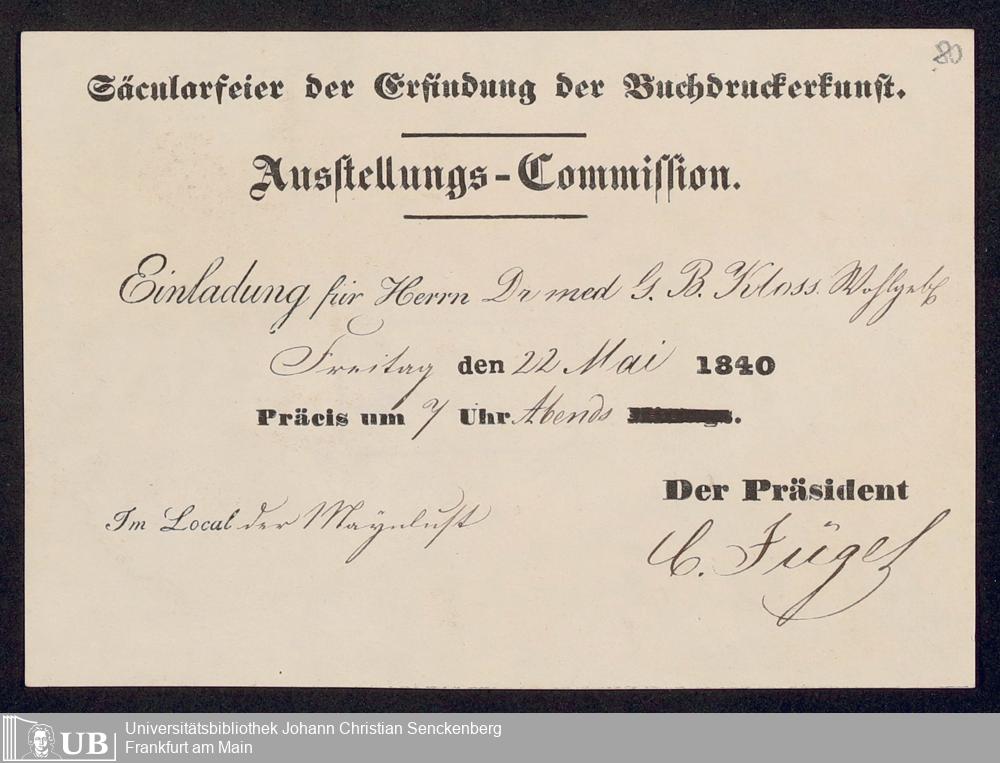 80
Säcularfeier der Erfindung der Buchdruckerkunst.
Ausstellungs-Commission.
Einladung für Herrn Dr med G. B. Kloss. Wohlgeb
Freitag den 22 Mai 1840
Präcis um 7 Uhr Abends
Im Local der Maynlust
Der Präsident
C. Jügel
UB
Universitätsbibliothek Johann Christian Senckenberg
Frankfurt am Main